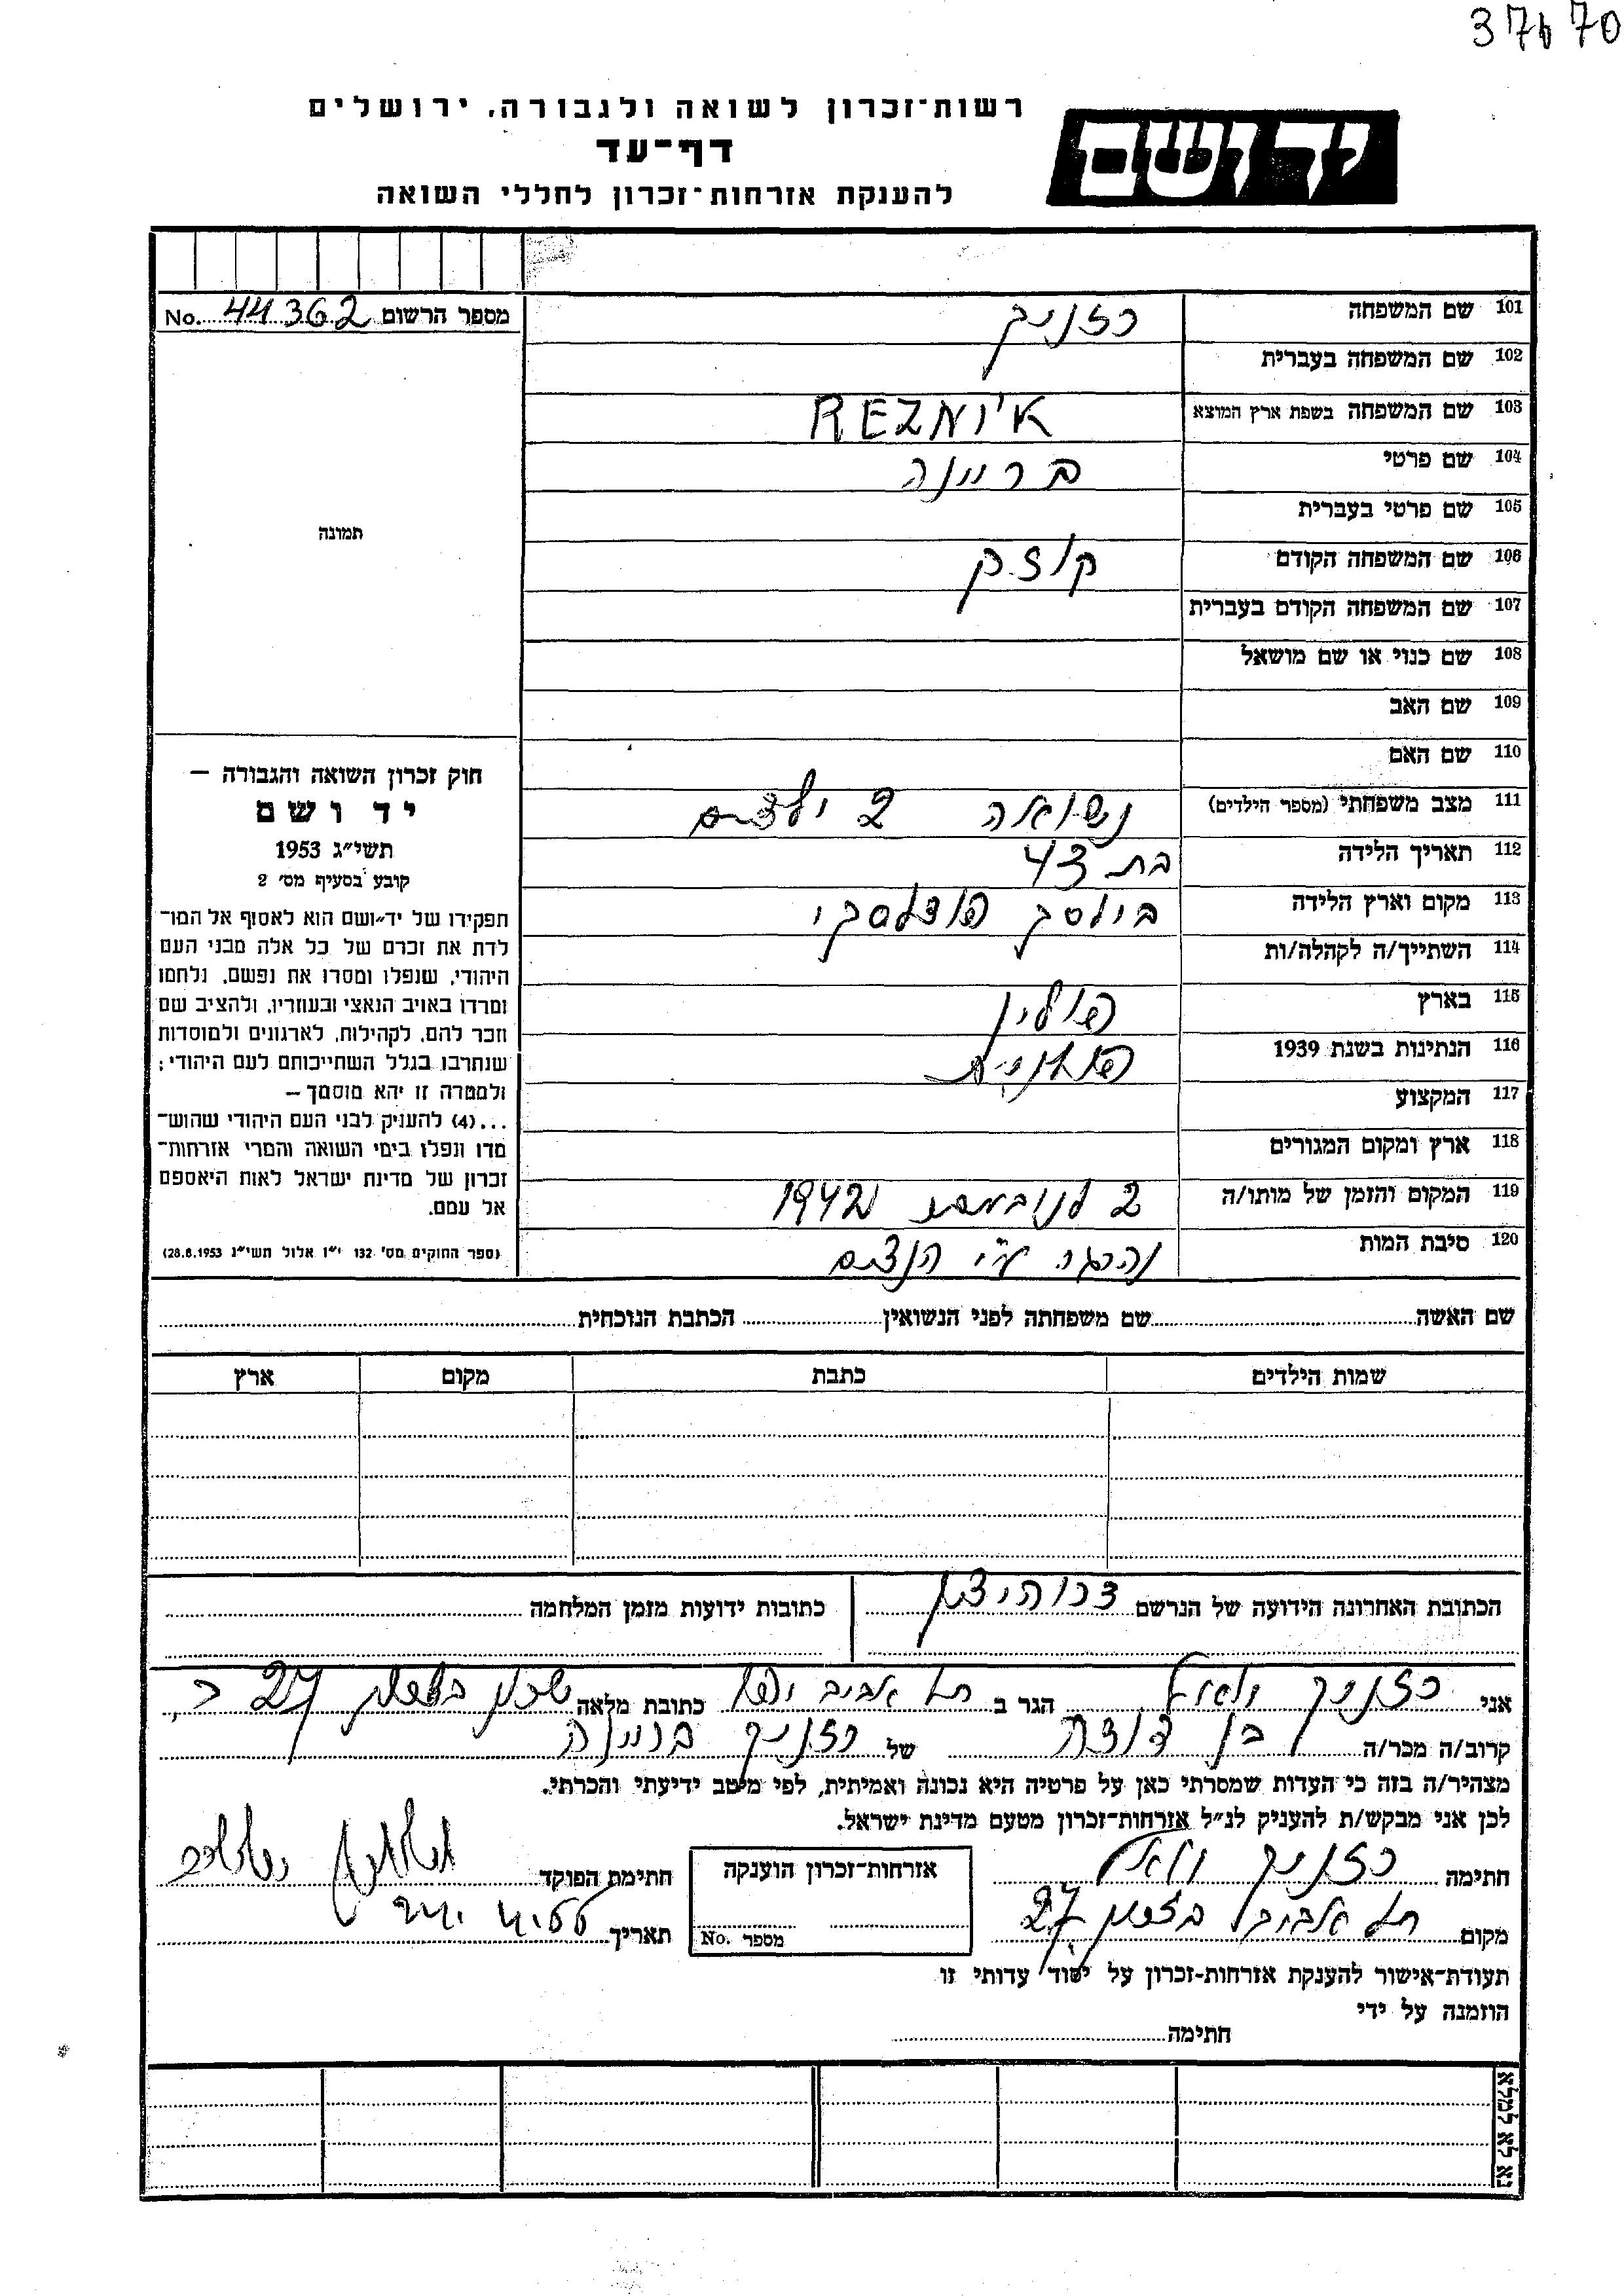 37670
רשות־זכרון לשואה ולגבורה, ירושלים
דף־עד
להענקת אזרחות־זכרון לחללי השואה
יד ושם
מספר הרשום No. 44362
101 שם המשפחה רזניק
102 שם המשפחה בעברית
103 שם המשפחה בשפת ארץ המוצא REZNIK
104 שם פרטי בריינה
105 שם פרטי בעברית
106 שם המשפחה הקודם
107 שם המשפחה הקודם בעברית
108 שם כנוי או שם מושאל
109 שם האב
110 שם האם
111 מצב משפחתי (מספר הילדים) נשואה 2 ילדים
112 תאריך הלידה בת 43
113 מקום וארץ הלידה בילסק פודלסקי
114 השתייך/ה לקהלה/ות
115 בארץ פולין
116 הנתינות בשנת 1939 פולנית
117 המקצוע
118 ארץ ומקום המגורים
119 המקום והזמן של מותו/ה 2 לנובמבר 1942
120 סיבת המות נהרגה ע״י הנצים
תמונה
חוק זכרון השואה והגבורה –
יד ושם
תשי״ג 1953
קובע בסעיף מס׳ 2
תפקידו של יד־ושם הוא לאסוף אל המו־
לדת את זכרם של כל אלה מבני העם
היהודי, שנפלו ומסרו את נפשם, נלחמו
ומרדו באויב הנאצי ובעוזריו, ולהציב שם
וזכר להם, לקהילות, לארגונים ולמוסדות
שנחרבו בגלל השתייכותם לעם היהודי;
ולמטרה זו יהא מוסמך –
...(4) להעניק לבני העם היהודי שהוש־
מדו ונפלו בימי השואה והמרי אזרחות־
זכרון של מדינת ישראל לאות היאספם
אל עמם.
(ספר החוקים מס׳ 132 י״ז אלול תשי״ג 28.8.1953)
שם האשה שם משפחתה לפני הנשואין הכתבת הנוכחית
שמות הילדים כתבת מקום ארץ
הכתובת האחרונה הידועה של הנרשם כתובות ידועות מזמן המלחמה
אני רזניק הגר ב תל אביב יפו כתובת מלאה שכון 27
קרוב/ה מכר/ה בן דודה של רזניק בריינה
מצהיר/ה בזה כי העדות שמסרתי כאן על פרטיה היא נכונה ואמיתית, לפי מיטב ידיעתי והכרתי.
לכן אני מבקש/ת להעניק לנ״ל אזרחות־זכרון מטעם מדינת ישראל.
חתימה רזניק אזרחות־זכרון הוענקה חתימת הפוקד
מקום תל אביב 27 מספר No. תאריך
תעודת־אישור להענקת אזרחות־זכרון על יסוד עדותי זו
הוזמנה על ידי
חתימה
נא לא למלא